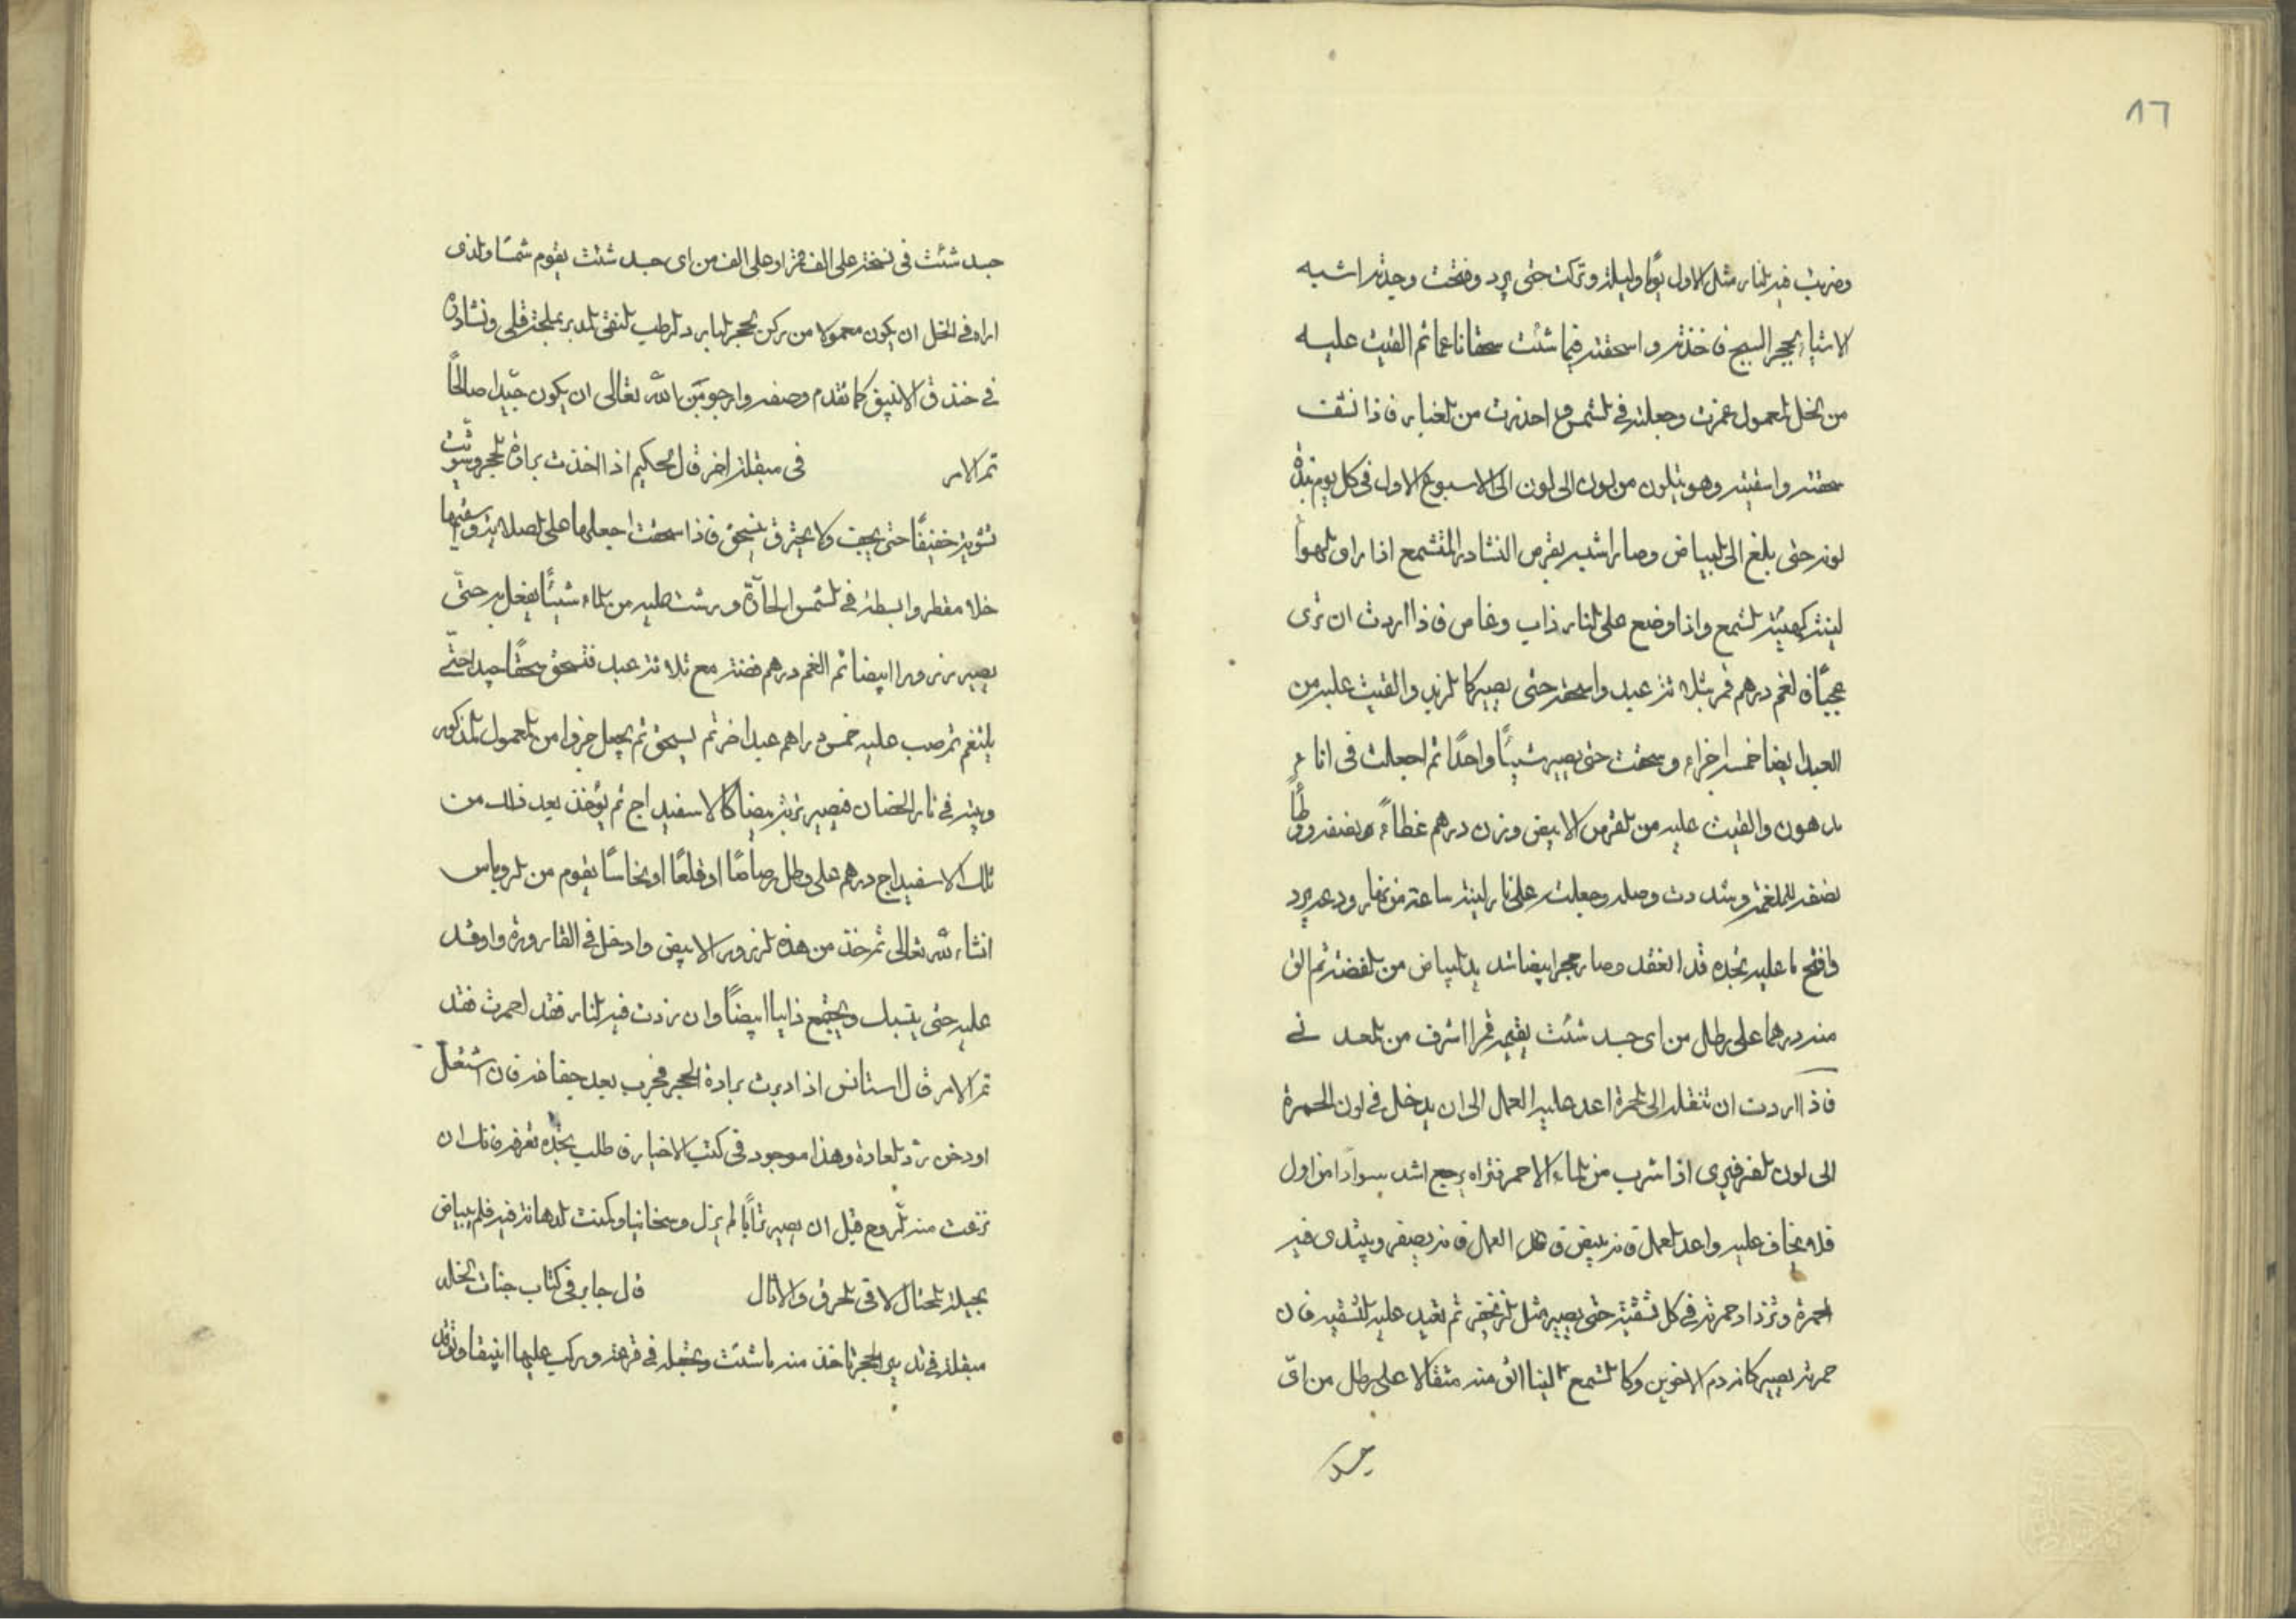 ٨٦
وضربت فيه النار مثل الاول يوما وليلة وتركت حتى يبرد وفتحت وجدته اشبه
الاشياء بحجر السبج فاخذته واسحقته فيما شئت سحقا ناعما ثم القيت عليه
من الخل المعمول غمرته وجعلته في الشمس واحذرت من الغبار فاذا نشف
سحقته واسقيته وهو يتلون من لون الى لون الى الاسبوع الاول في كل يوم
لونه حتى بلغ الى البياض وصار اشبه بقرص النشادر المتشمع اذا راى الهوا
لينته كهيئة الشمع واذا وضع على النار ذاب وغاص فاذا اردت ان ترى
عجبا فالغم درهم قمر بثلاثة عبد واسحقه حتى يصير كالزبد والقيت عليه من
العبد ايضا خمسة اجزاء وسحقت حتى يصير شيئا واحدا ثم اجعلت في اناء
مدهون والقيت عليه من القرص الابيض وزن درهم غطاء ونصفه
نصفه للملغمة وشددت وصله وجعلته على نار لينة ساعة من نهار ودعه يبرد
وافتح ما عليه تجده قد انعقد وصار حجرا ابيضا شديد البياض من الفضة ثم الق
منه درهما على رطل من اى جسد شئت يقيمه قمرا اشرف من المعدني
فاذا اردت ان تنقله الى الحمرة اعد عليه العمل الى ان يدخل في لون الحمرة
الى لون الفرفيرى اذا شرب من الماء الاحمر فتراه يرجع اشد سوادا من اول
فلا تخاف عليه واعد العمل فانه يبيض العمل فانه يصفر ويبتدى فيه
الحمرة وتزداد حمرته في كل تسقية حتى يصير مثل الزنجفر ثم تعيد عليه التسقية فان
حمرته يصير كانه دم الاخوين وكالشمع لينا الق منه مثقالا على رطل من اى
جسد
جسد شئت في نسخة على الف قمر او على الف من اى جسد شئت يقوم شمسا والذى
اراه في الخل ان يكون معمولا من ركن الحجر البارد الرطب النقى المدبر بملحة قلى ونشادر
في خندق الانبيق كما تقدم وصفه وارجو من الله تعالى ان يكون جيدا صالحا
تم الامر في مبقلة اخر قال الحكيم اذا اخذت برادة الحجر وشويت
تشوية خفيفا حتى يجف ولا يحترق ينسحق فاذا سحقت اجعلها على الصلاية وسقيها
خلا مقطر وابسطه في الشمس الحارة ورشت عليه من الماء شيئا يفعل به حتى
يصير ابيضا ثم الغم درهم فضة مع ثلاثة عبد فتسحق سحقا جيدا حتى
يلتغم ثم صب عليه خمس دراهم عبد اخر ثم يسحق ثم يجعل جزوا من المعمول المذكور
وبيته في نار الحضان فيصير تربة بيضا كالاسفيداج ثم يؤخذ بعد ذلك من
تلك الاسفيداج درهم على رطل رصاصا او قلعا او نحاسا يقوم من الروباس
انشاء الله تعالى ثم خذ من هذه الابيض وادخل في القارورة واوقد
عليه حتى ينسبك ويجتمع ذايبا ابيضا وان زدت فيه النار فقد احمرت فقد
تم الامر قال استانس اذا دبرت برادة الحجر فجرب بعد جفافه فان اشتعل
او دخن رد العادة وهذا موجود في كتب الاخيار فاطلب تجده تعرفه فانك ان
نزعت منه الروح قبل ان يصير ترابا لم يزل وسخا نيا وكنت الدهانة فيه فلم يبياض
بحيلة المحتال لا في الحرق والاثال قال جابر في كتاب جنات الخلد
مبقلة في تدبير الحجر تاخذ منه ما شئت وتجعله في قرعة وركب عليها انبيقا